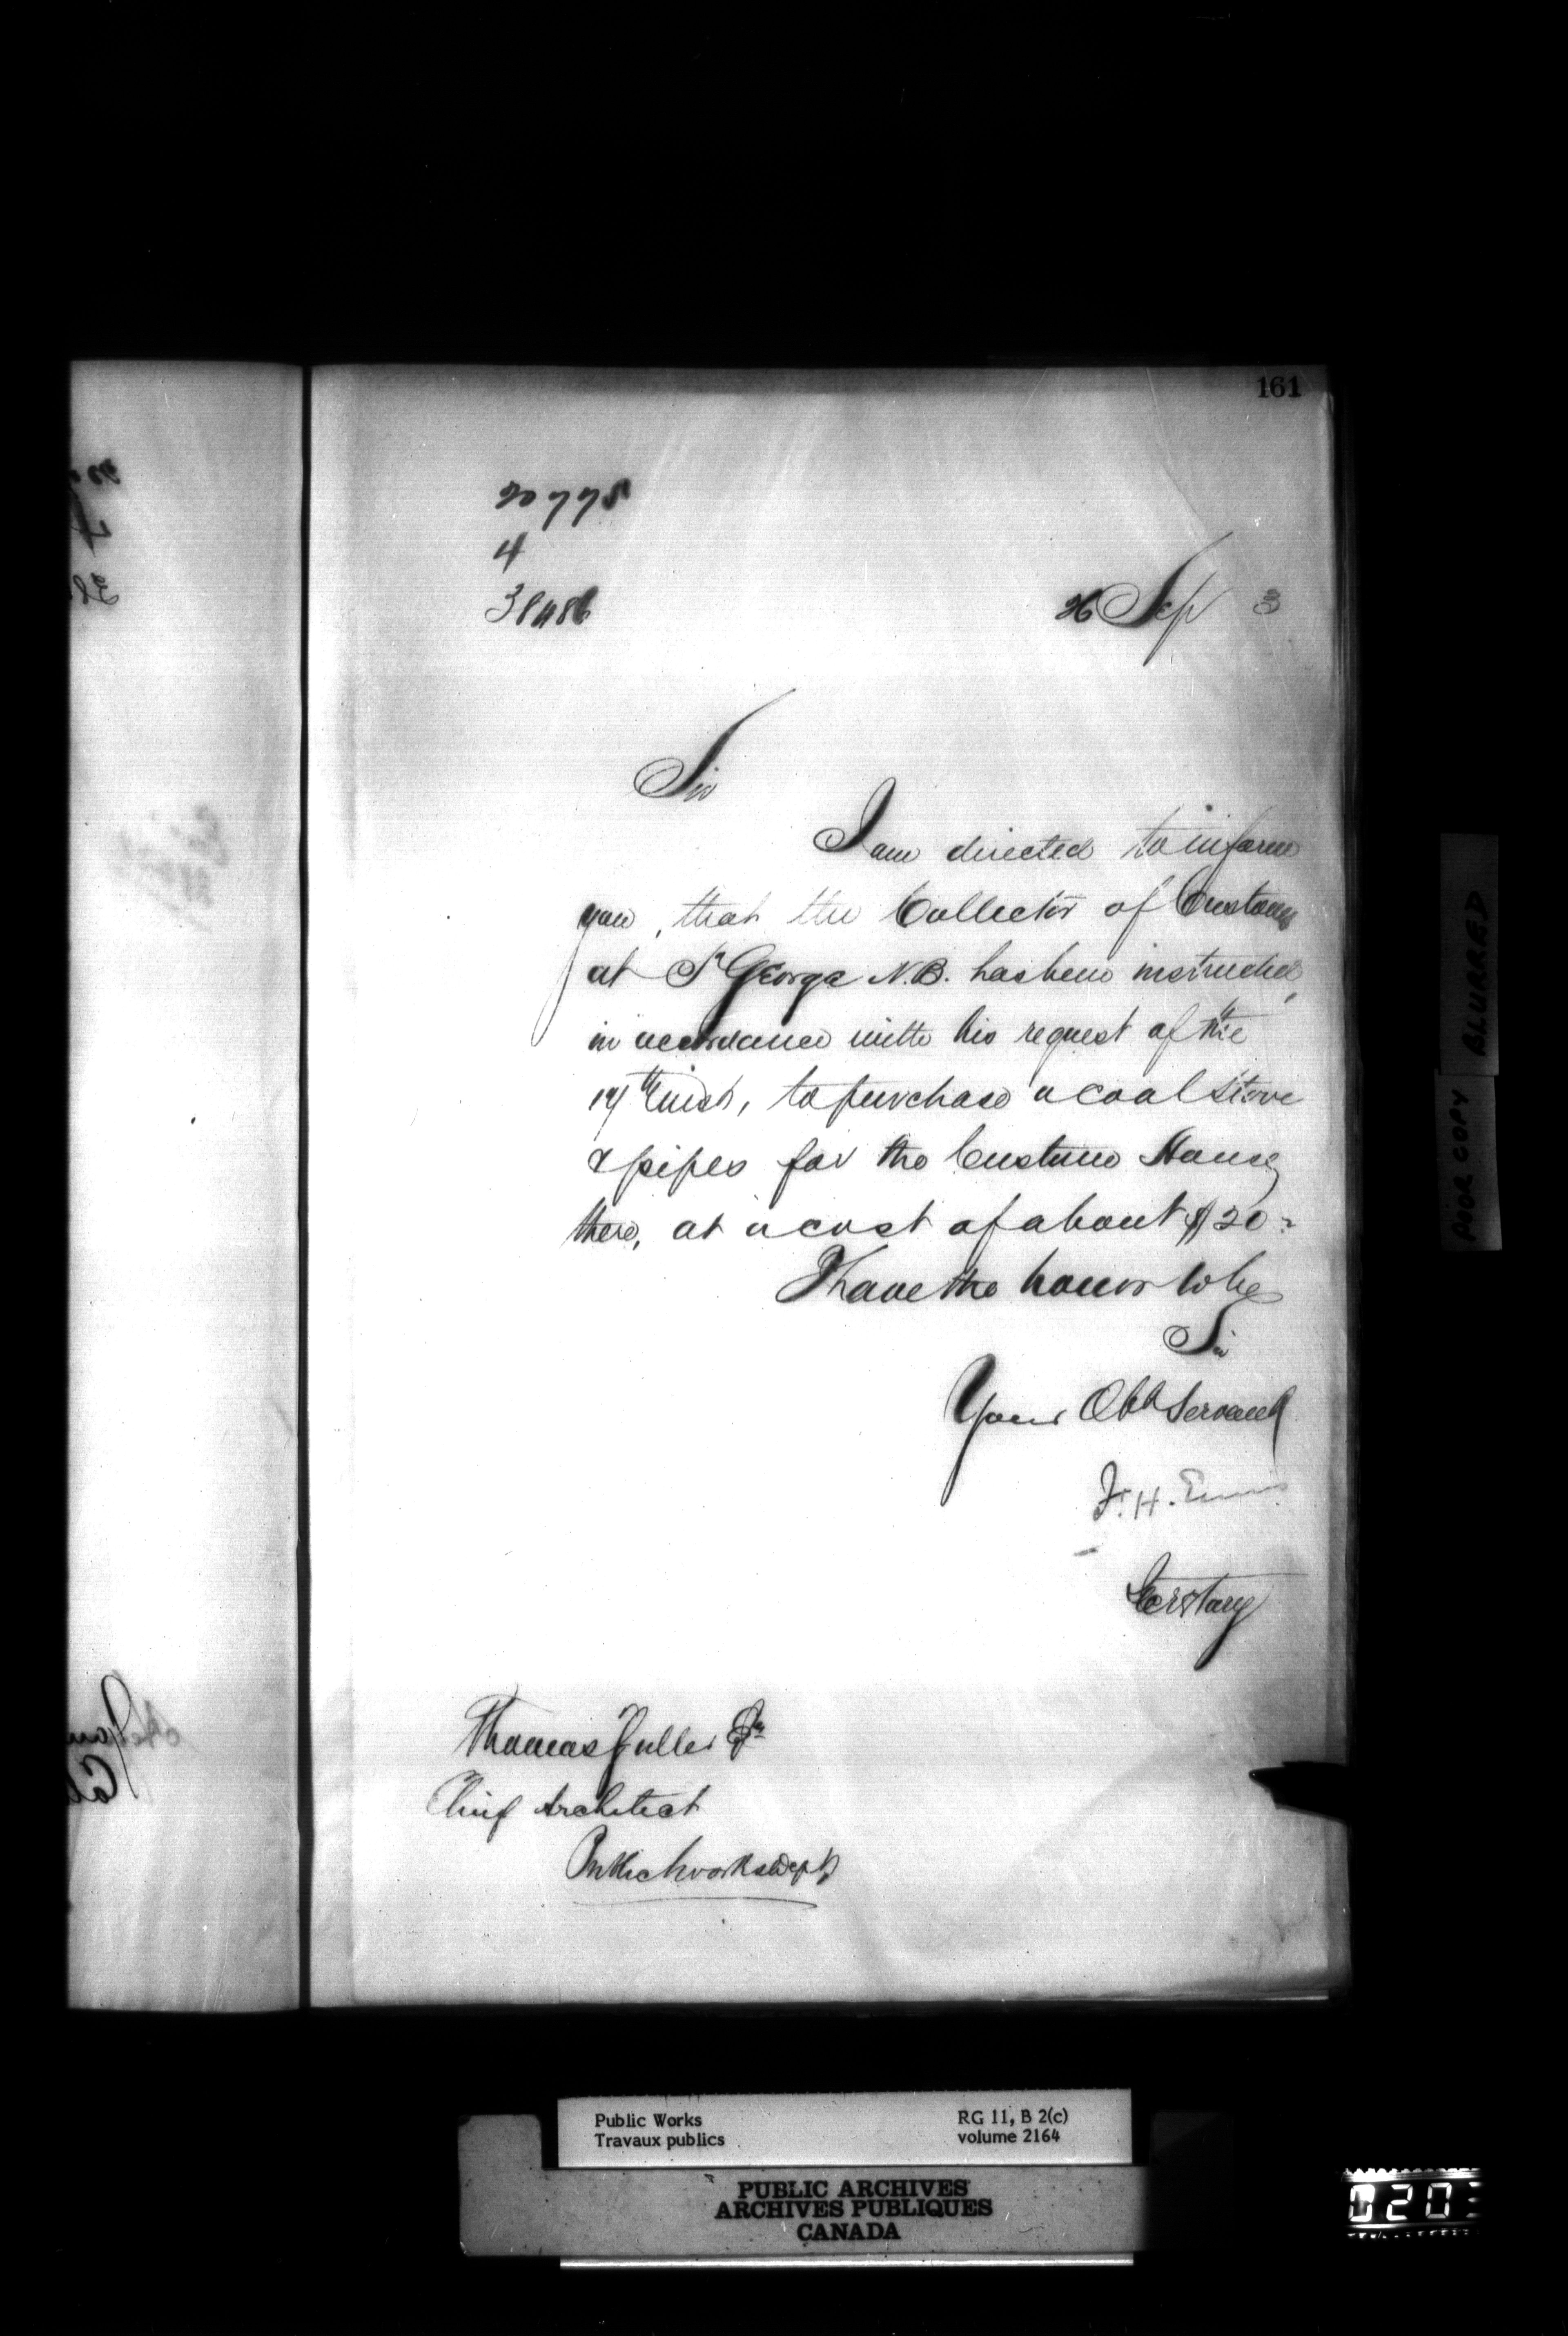 161
20775
4
38486
26 Sep 3
Sir
I am directed to inform
you, that the Collector of Customs
at St George N.B. has been instructed,
in accordance with his request of the
17th inst, to purchase a coal stove
& pipes for the Custom House
there, at a cost of about $20=
I have the honor to be
Sir
Your Obt Servant
F. H. Ennis
Secretary
Thomas Fuller Esq
Chief Architect
Public Works Dept
POOR COPY BLURRED
Public Works
Travaux publics
RG 11, B 2(c)
volume 2164
PUBLIC ARCHIVES
ARCHIVES PUBLIQUES
CANADA
020